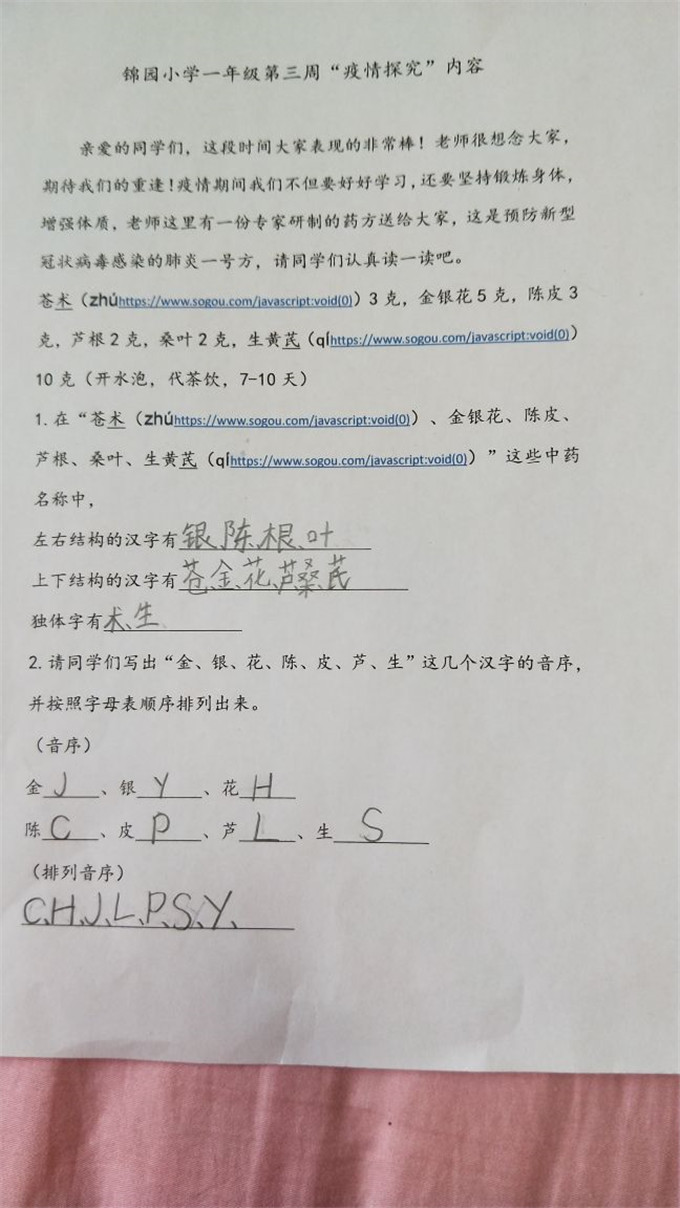 锦园小学一年级第三周“疫情探究”内容
亲爱的同学们，这段时间大家表现的非常棒！老师很想念大家，
期待我们的重逢！疫情期间我们不但要好好学习，还要坚持锻炼身体，
增强体质，老师这里有一份专家研制的药方送给大家，这是预防新型
冠状病毒感染的肺炎一号方，请同学们认真读一读吧。
苍术（zhúhttps://www.sogou.com/javascript:void(0)）3 克，金银花 5 克，陈皮 3
克，芦根 2 克，桑叶 2 克，生黄芪（qíhttps://www.sogou.com/javascript:void(0)）
10 克（开水泡，代茶饮，7-10 天）
1. 在“苍术（zhúhttps://www.sogou.com/javascript:void(0)）、金银花、陈皮、
芦根、桑叶、生黄芪（qíhttps://www.sogou.com/javascript:void(0)）”这些中药
名称中，
左右结构的汉字有银、陈、根、叶
上下结构的汉字有苍、金、花、芦、桑、芪
独体字有术、生
2. 请同学们写出“金、银、花、陈、皮、芦、生”这几个汉字的音序，
并按照字母表顺序排列出来。
（音序）
金 J 、银 Y 、花 H
陈 C 、皮 P 、芦 L 、生 S
（排列音序）
C、H、J、L、P、S、Y、